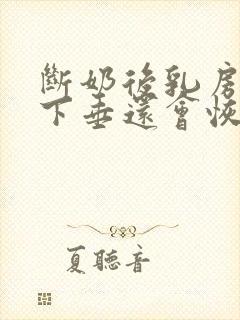 斷奶後乳房
下垂還會恢
夏聽音